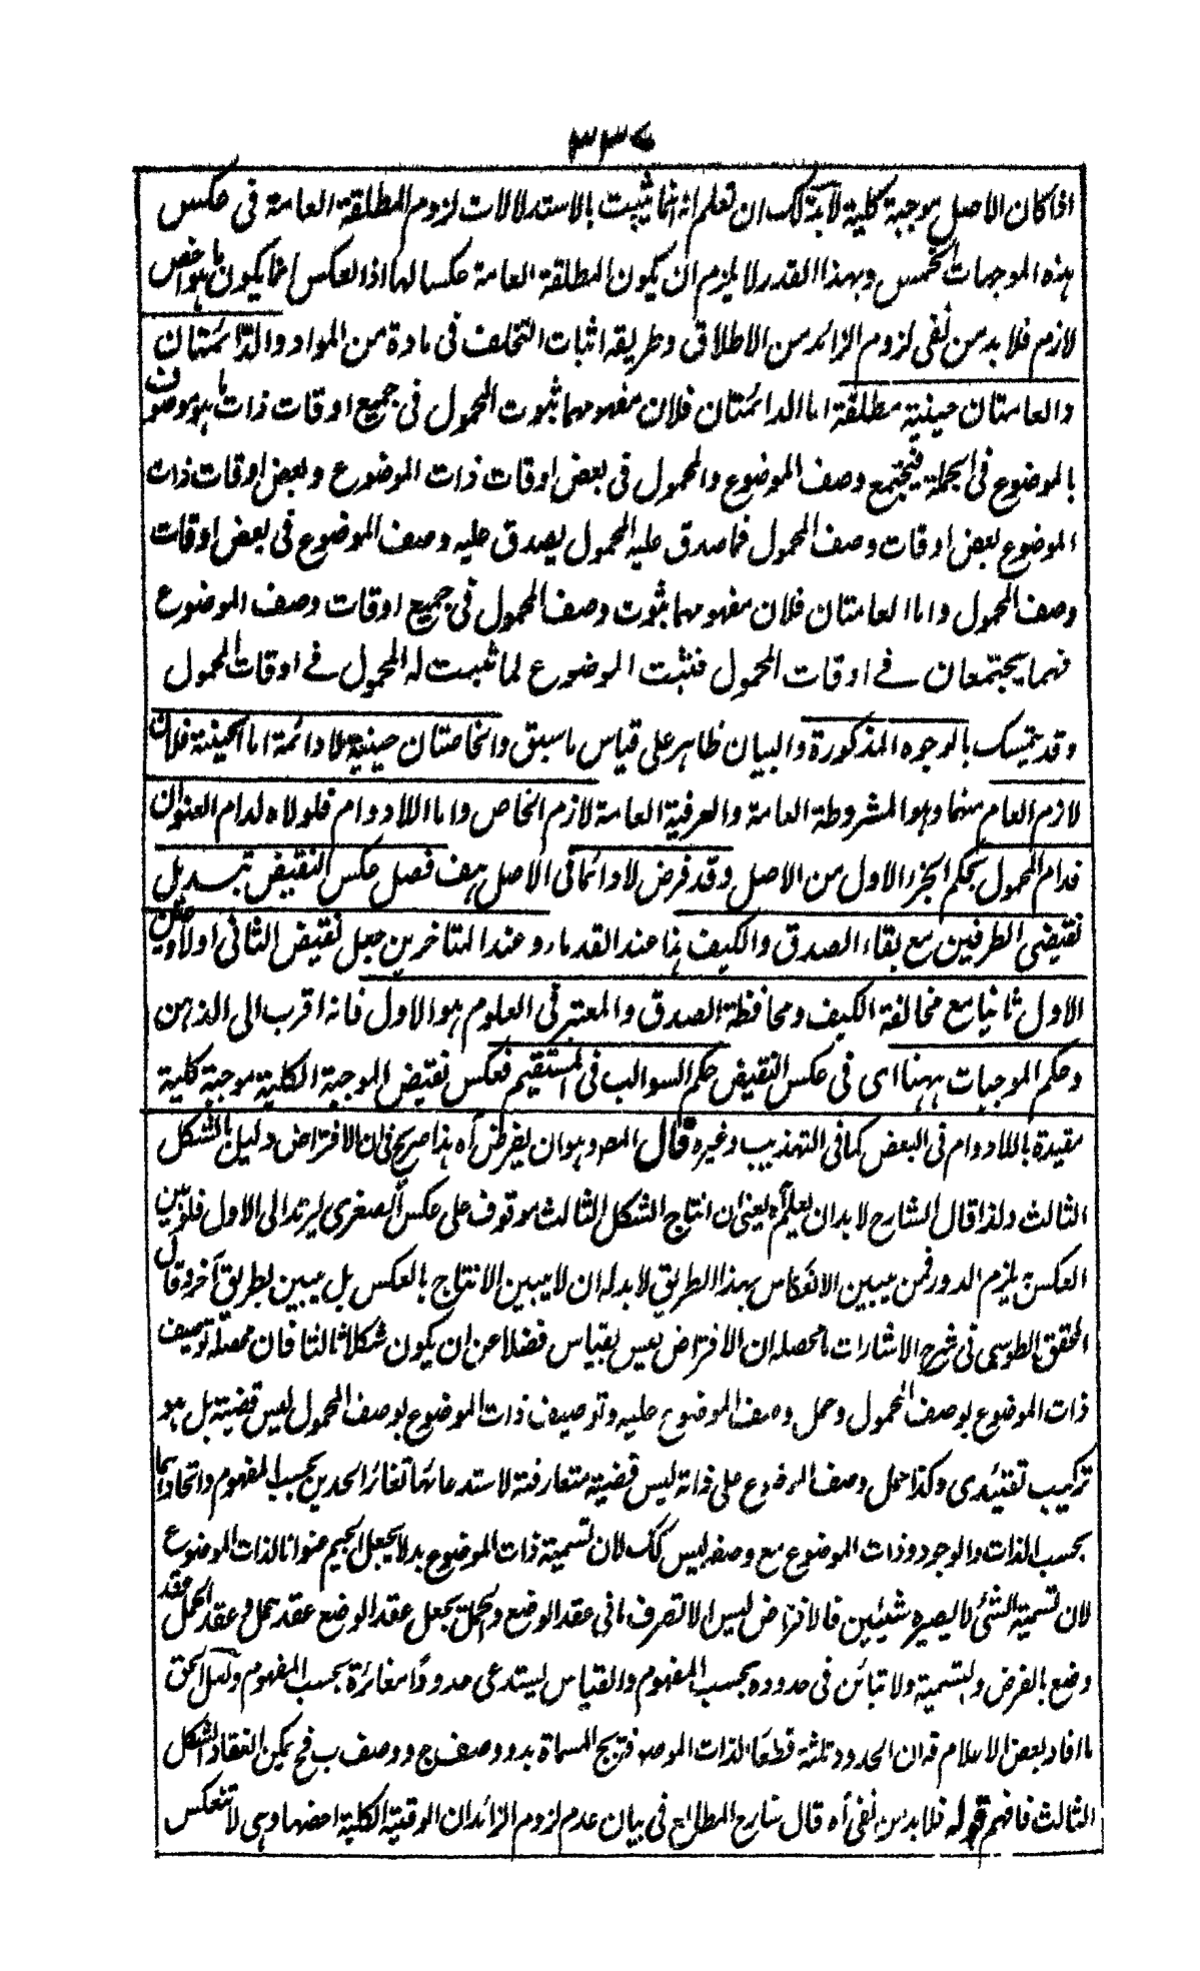 ٣٣٧
اذا كان الاصل موجبة كلية لابد لك ان تعلم انه انما يثبت بالاستدلالات لزوم المطلقة العامة فى عكس
هذه الموجهات الخمس وبهذا القدر لا يلزم ان يكون المطلقة العامة عكسا لها اذ العكس انما يكون ما هو اخص
لازم فلا بد من نفى لزوم الزائد من الاطلاق وطريقه اثبات التخلف فى مادة من المواد والدائمتان
والعامتان حينية مطلقة اما الدائمتان فلان مفهومهما ثبوت المحمول فى جميع اوقات ذات ما هو موصوف
بالموضوع فى الجملة فيجتمع وصف الموضوع والمحمول فى بعض اوقات ذات الموضوع وبعض اوقات ذات
الموضوع بعض اوقات وصف المحمول فما صدق عليه المحمول يصدق عليه وصف الموضوع فى بعض اوقات
وصف المحمول واما العامتان فلان مفهومهما ثبوت وصف المحمول فى جميع اوقات وصف الموضوع
فهما يجتمعان فى اوقات المحمول فثبت الموضوع لما ثبت له المحمول فى اوقات المحمول
وقد يتمسك بالوجوه المذكورة والبيان ظاهر على قياس ما سبق والخاصتان حينية لا دائمة اما الحينية فلان
لازم العام منهما وهو المشروطة العامة والعرفية العامة لازم الخاص واما اللادوام فلولاه لدام العنوان
فدام المحمول بحكم الجزء الاول من الاصل وقد فرض لا دائما فى الاصل هف فصل عكس النقيض تبديل
نقيضى الطرفين مع بقاء الصدق والكيف هذا عند القدماء وعند المتاخرين جعل نقيض الثانى اولا وعين
الاول ثانيا مع مخالفة الكيف ومحافظة الصدق والمعتبر فى العلوم هو الاول فانه اقرب الى الذهن
وحكم الموجبات ههنا اى فى عكس النقيض حكم السوالب فى المستقيم فعكس نقيض الموجبة الكلية موجبة كلية
مقيدة باللادوام فى البعض كما فى التهذيب وغيره قال المصـ وهو ان يفرض آه هذا صريح فى ان الافتراض دليل بالشكل
الثالث ولذا قال الشارح لا بد ان يعلم آه يعنى ان انتاج الشكل الثالث موقوف على عكس الصغرى ليرتد الى الاول فلو بين
العكس به يلزم الدور فمن يبين الانعكاس بهذا الطريق لا بد له ان لا يبين الانتاج بالعكس بل يبين بطريق آخر وقال
المحقق الطوسى فى شرح الاشارات ما محصله ان الافتراض ليس بقياس فضلا عن ان يكون شكلا ثالثا فان محصله توصيف
ذات الموضوع بوصف المحمول وحمل وصف الموضوع عليه وتوصيف ذات الموضوع بوصف المحمول ليس قضية بل هو
تركيب تقييدى وكذا حمل وصف الموضوع على ذاته ليس قضية متعارفة لاستدعائها تغائر الحدين بحسب المفهوم واتحادهما
بحسب الذات والوجود وذات الموضوع مع وصفه ليس كك لان تسمية ذات الموضوع بد لا يجعل الجيم عنوانا لذات الموضوع
لان تسمية الشئ لا يصيره شيئين فالافتراض ليس الا تصرف ما فى عقد الوضع والحمل بجعل عقد الوضع عقد حمل وعقد الحمل عقد
وضع بالفرض والتسمية ولا تبائن فى حدوده بحسب المفهوم والقياس ليستدعى حدودا مغائرة بحسب المفهوم ولعل الحق
ما افاد بعض الاعلام قه ان الحدود ثلثة قطعا لذات الموضوع ج المسماة بد ووصف ج ووصف ب فح يمكن انعقاد الشكل
الثالث فافهم قوله فلا بد من نفى آه قال شارح المطالع فى بيان عدم لزوم الزائد ان الوقتية الكلية اخصها وهى لا تنعكس